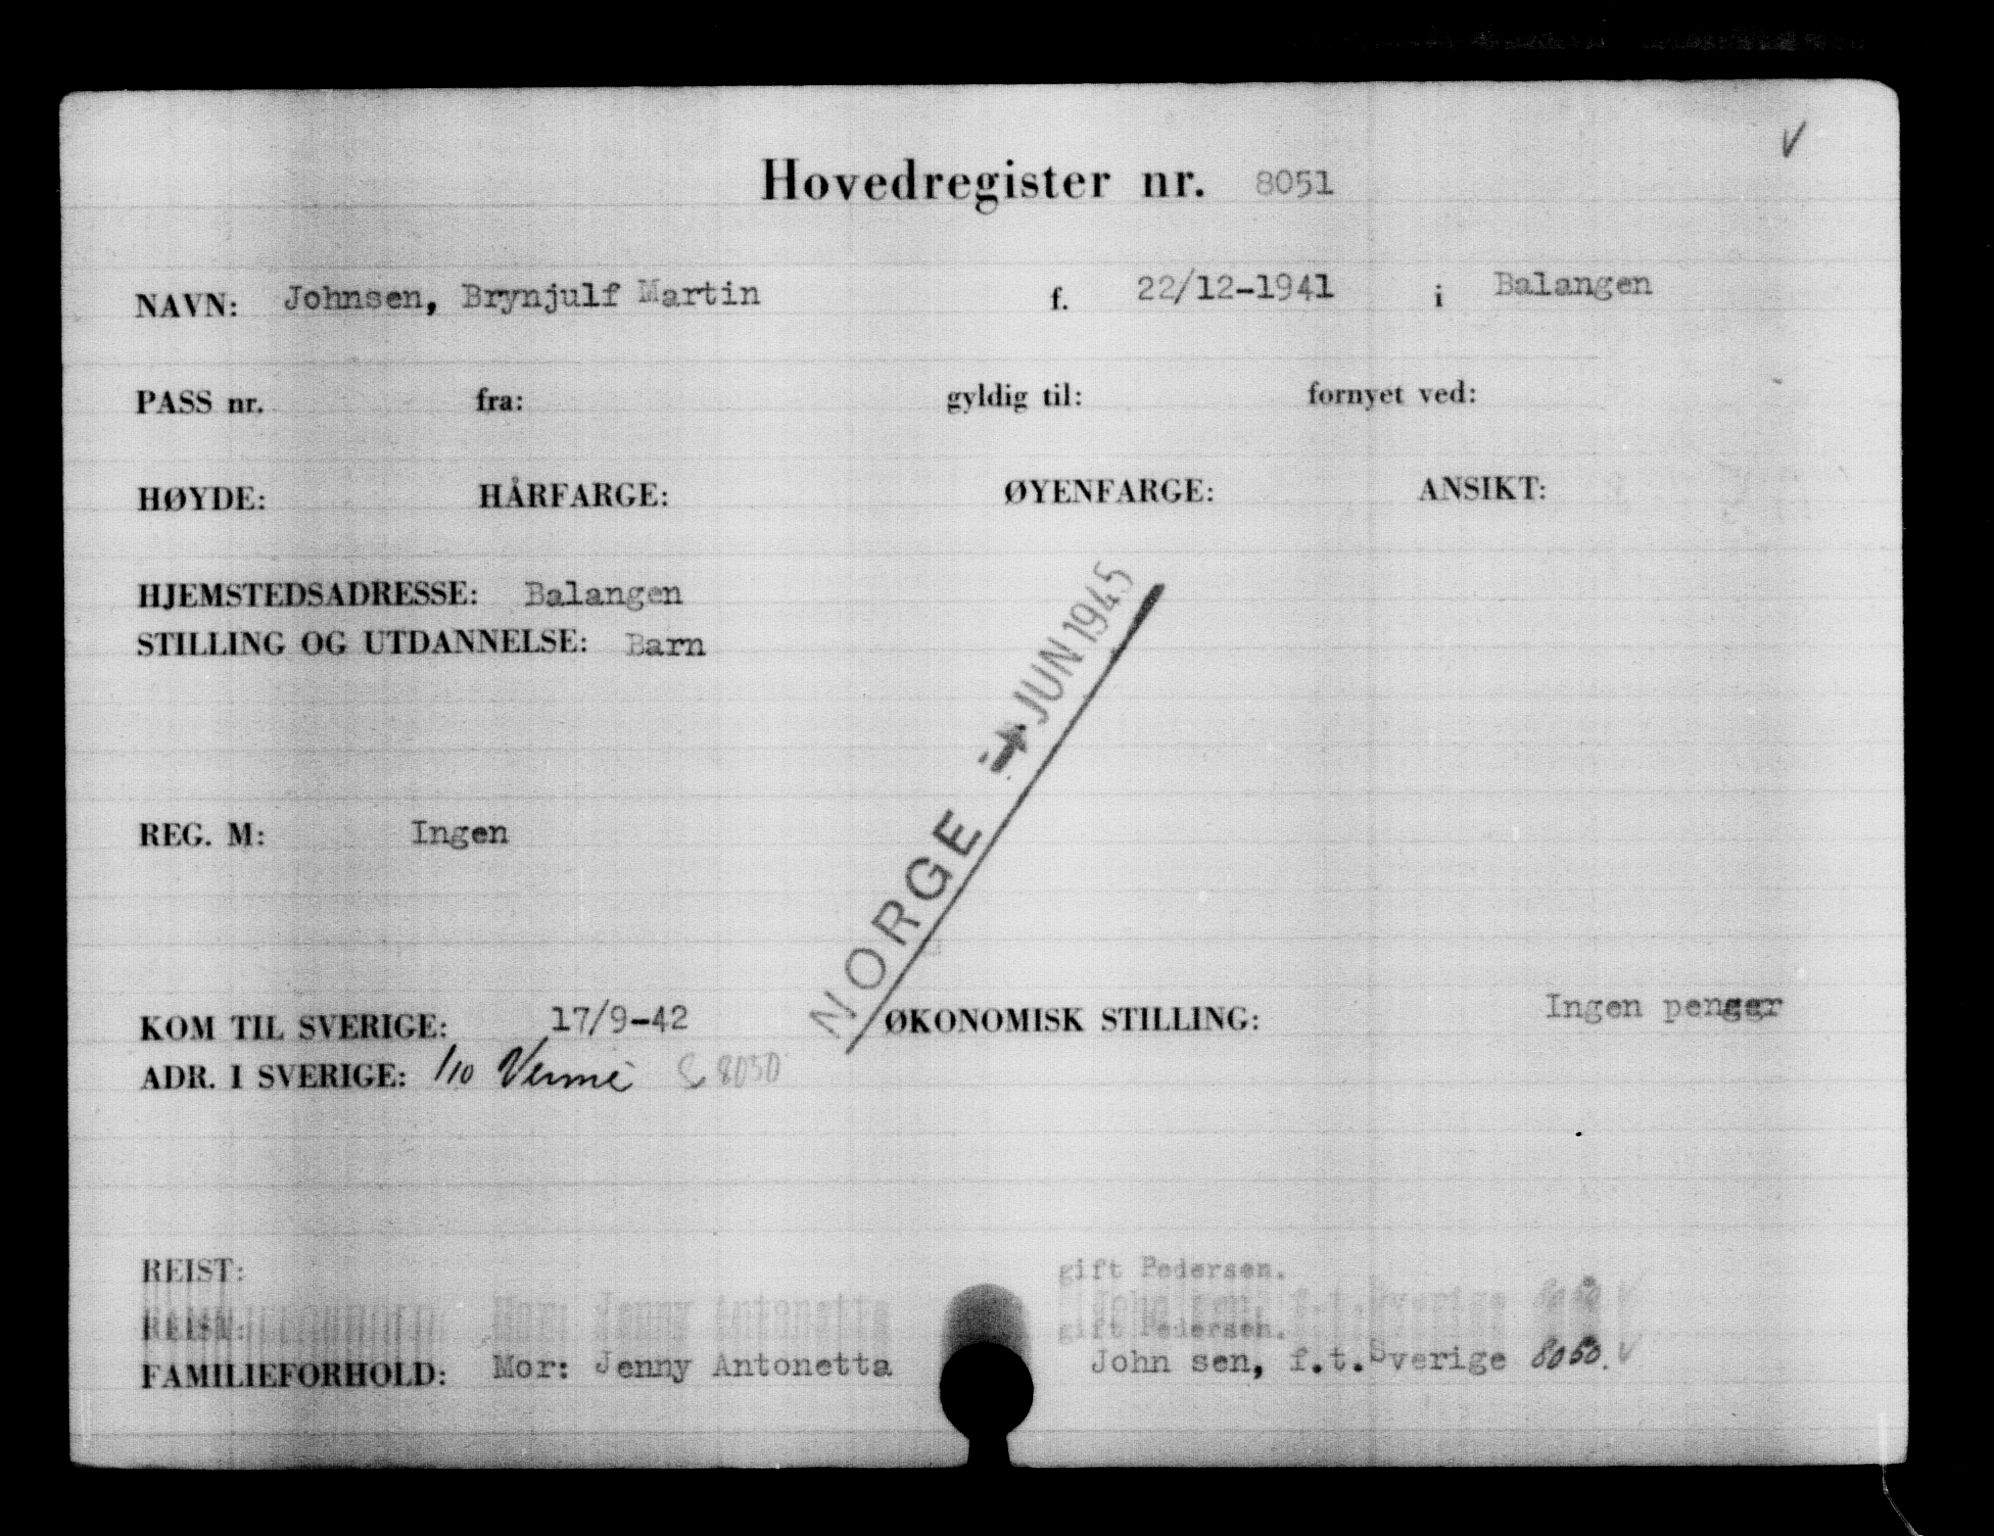 Hovedregister nr. 8051
NAVN: Johnsen, Brynjulf Martin f. 22/12-1941 i Balangen
PASS nr. fra: gyldig til: fornyet ved:
HØYDE: HÅRFARGE: ØYENFARGE: ANSIKT:
HJEMSTEDSADRESSE: Balangen
STILLING OG UTDANNELSE: Barn
NORGE JUN 1945
REG. M: Ingen
KOM TIL SVERIGE: 17/9-42 ØKONOMISK STILLING: Ingen penger
ADR. I SVERIGE: 1/10 8050
REIST: gift Pedersen.
REIST: gift Pedersen.
FAMILIEFORHOLD: Mor: Jenny Antonetta John sen, f.t. Sverige 8050.